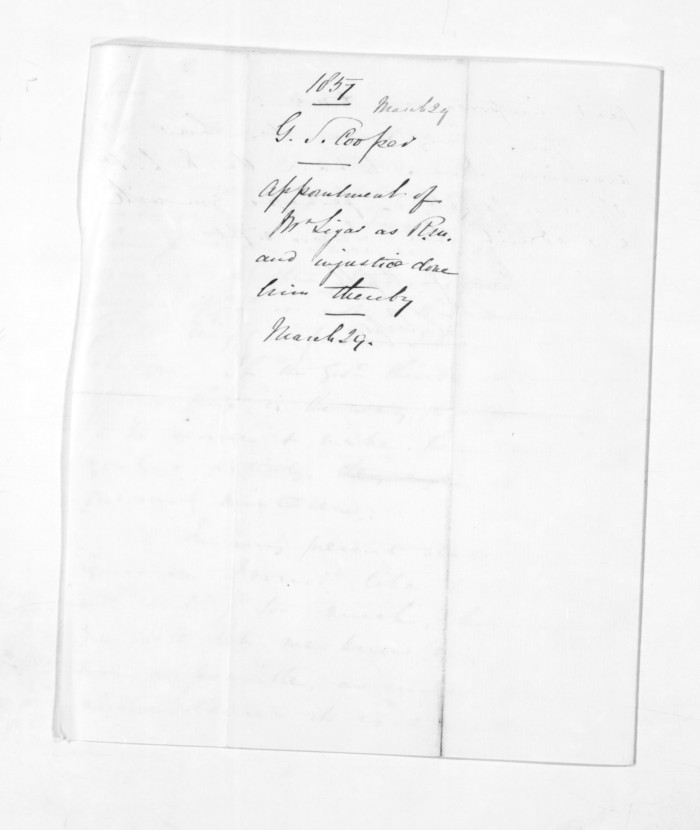 1857
March 29
G. S. Cooper
Appointment of
Mr Ligar as R.M.
and injustice done
him thereby
March 29.